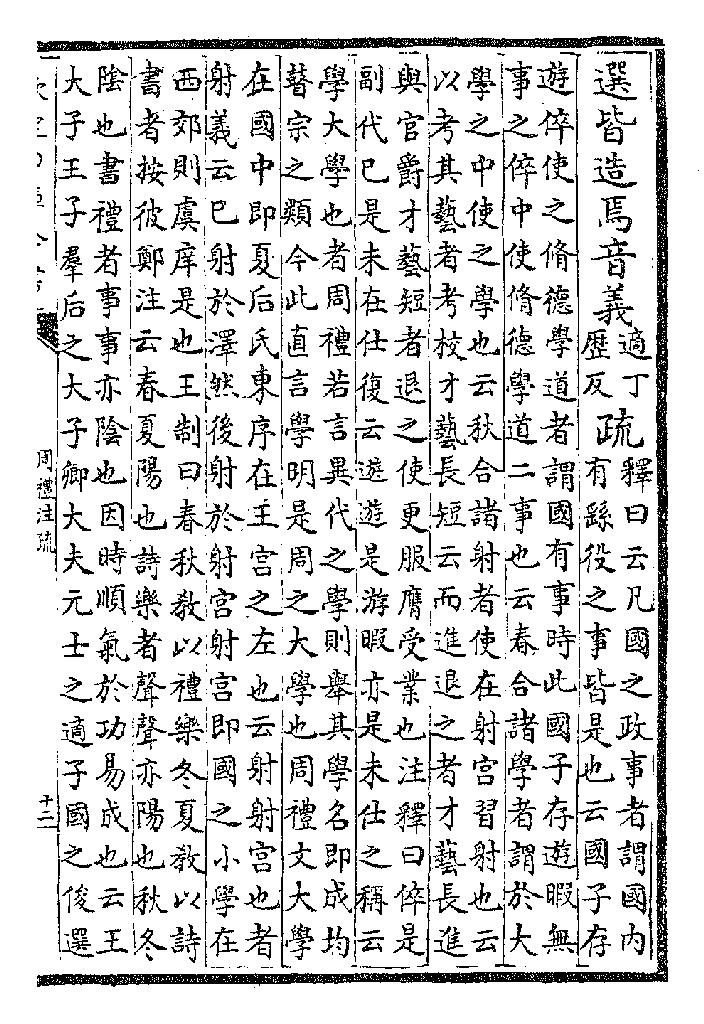 選皆造焉音義適丁
歷反疏釋曰云凡國之政事者謂國内
有繇役之事皆是也云國子存
遊倅使之脩德學道者謂國有事時此國子存遊暇無
事之倅中使脩德學道二事也云春合諸學者謂於大
學之中使之學也云秋合諸射者使在射宮習射也云
以考其藝者考校才藝長短云而進退之者才藝長進
與官爵才藝短者退之使更服膺受業也注釋曰倅是
副代巳是未在仕復云遊遊是游暇亦是未仕之稱云
學大學也者周禮若言異代之學則舉其學名即成均
瞽宗之類今此直言學明是周之大學也周禮文大學
在國中即夏后氏東序在王宮之左也云射射宮也者
射義云巳射於澤然後射於射宮射宮即國之小學在
西郊則虞庠是也王制曰春秋敎以禮樂冬夏敎以詩
書者按彼鄭注云春夏陽也詩樂者聲聲亦陽也秋冬
陰也書禮者事事亦陰也因時順氣於功易成也云王
大子王子羣后之大子卿大夫元士之適子國之俊選
周禮注疏
十二